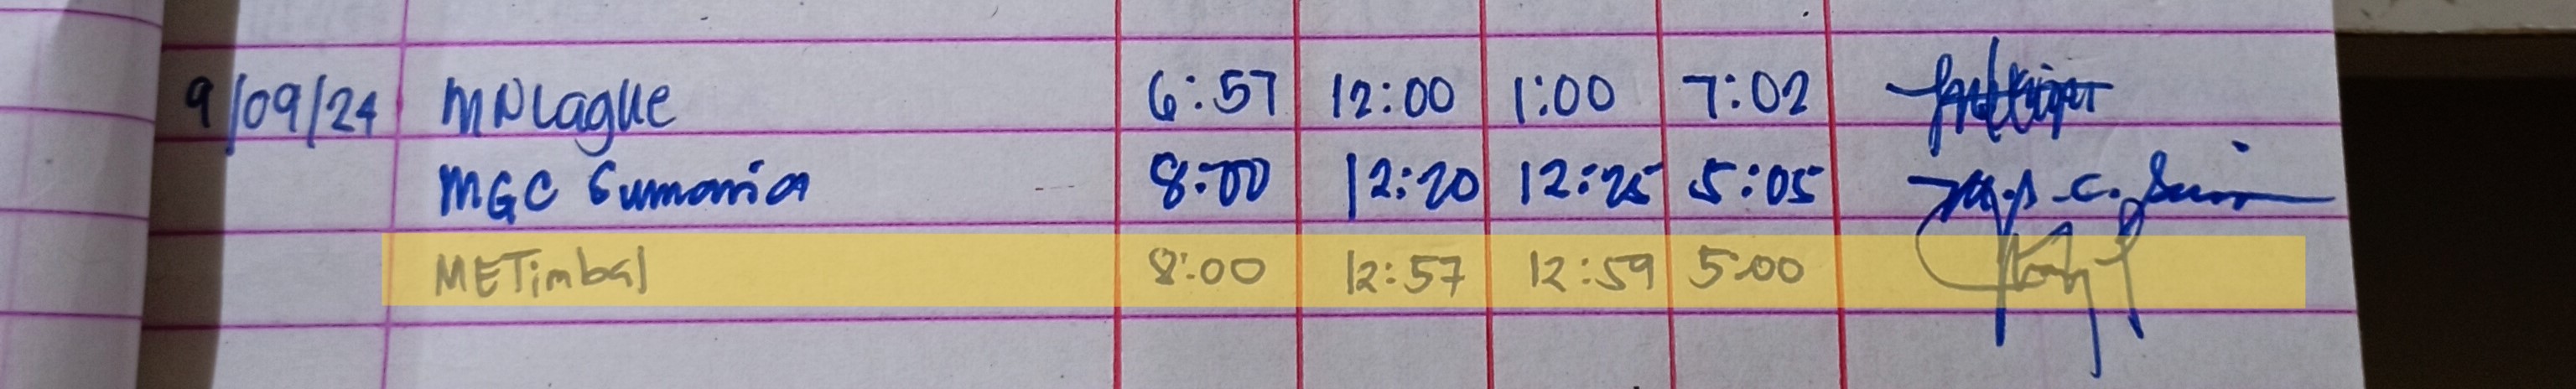 9/09/24 MNLague 6:57 12:00 1:00 7:02
MGC Sumania 8:00 12:20 12:25 5:05
METimbal 8:00 12:57 12:59 5:00